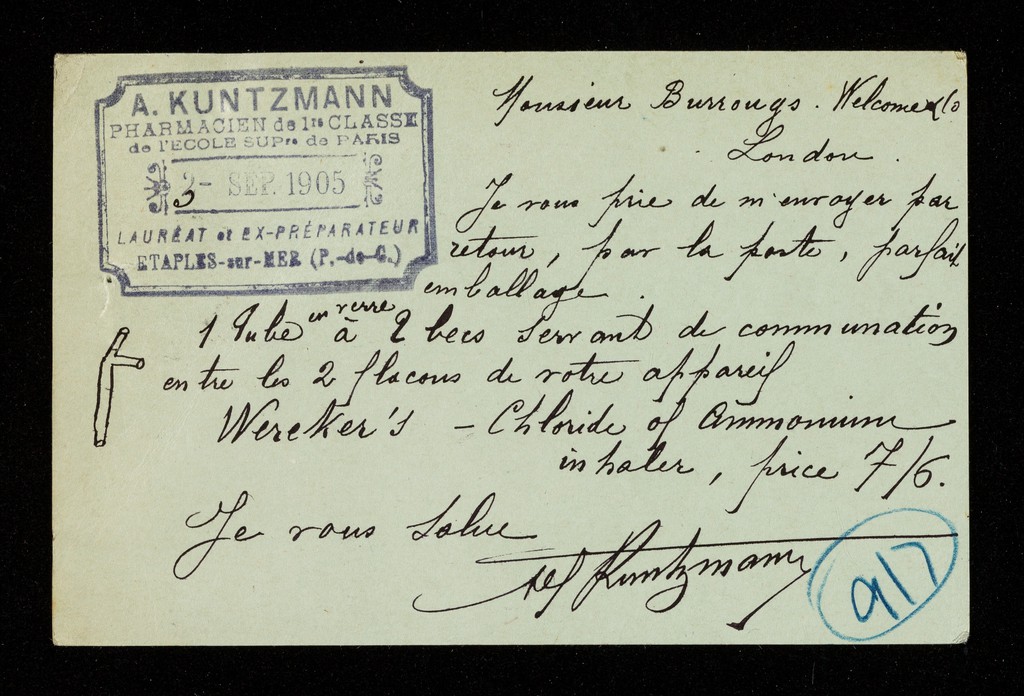 A. KUNTZMANN
PHARMACIEN de 1re CLASSE
de l'ECOLE SUPre de PARIS
3 - SEP. 1905
LAURÉAT et EX-PRÉPARATEUR
ETAPLES-sur-MER (P.-de-C.)
Monsieur Burrougs. Welcome & Co
London.
Je vous prie de m'envoyer par
retour, par la poste, parfait
emballage.
1 Tube en verre à 2 becs servant de communation
entre les 2 flacons de votre appareil
Wereker's - Chloride of Ammonium
inhaler, price 7/6.
Je vous salue
Kuntzmann
9/7